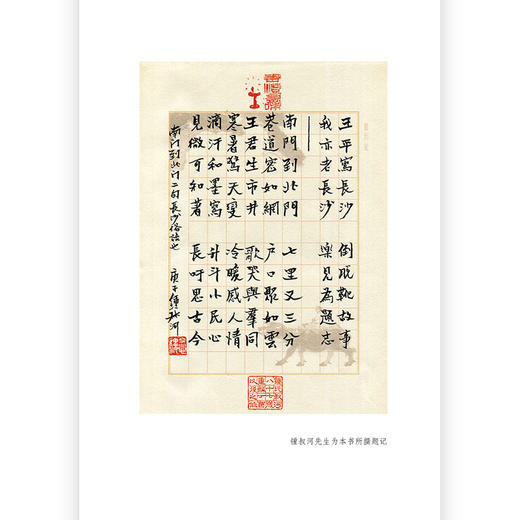 王平寫長沙 倒脫靴故事
我亦老長沙 樂見為題志
南門到北門 七里又三分
巷道密如網 戶口聚如雲
王君生市井 歌哭與羣同
寒暑驚天變 冷暖感人情
滴汗和墨寫 升斗小民心
見微可知著 長吁思古今
南門到北門二句長沙俗語也 庚子鍾叔河
鍾叔河先生为本书所撰题记